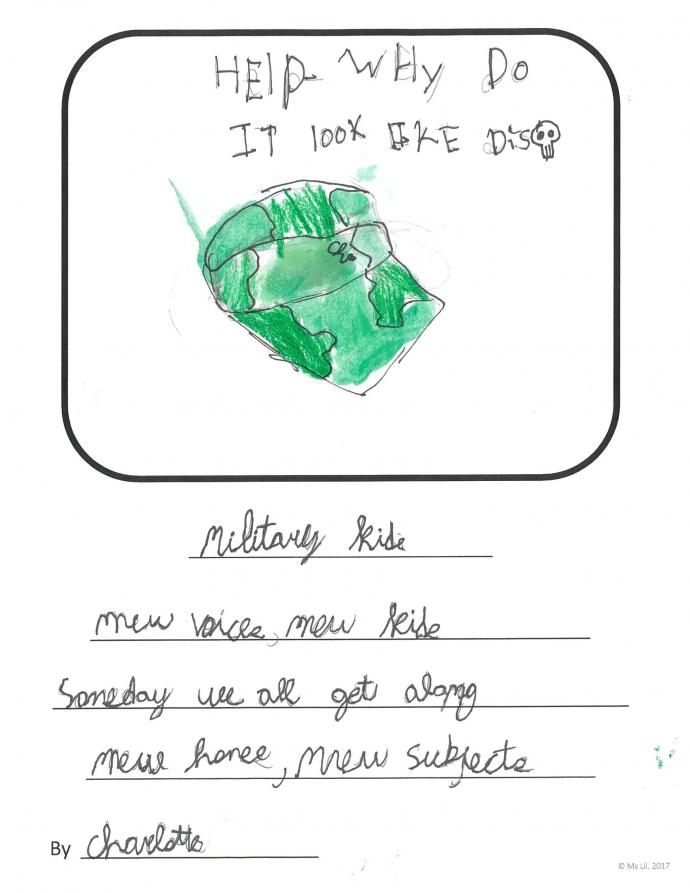 HELP WHY DO
IT look LIKE Dis
Military kids
new voices, new kids
Someday we all get along
new homes, new subjects
By Charlotte
© Ms Lil. 2017